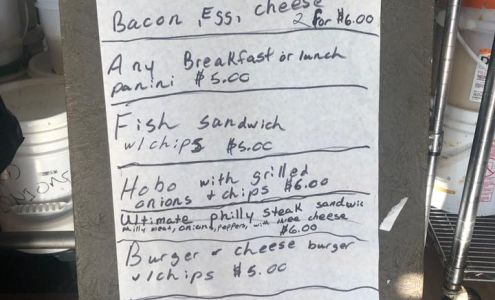 Bacon, Egg, cheese
2 for $6.00
Any Breakfast or lunch
panini $5.00
Fish sandwich
w/chips $5.00
Hobo with grilled
onions + chips $6.00
Ultimate philly steak sandwic
philly meat, onions, peppers, with cheese
$6.00
Burger or cheese burger
w/chips $5.00